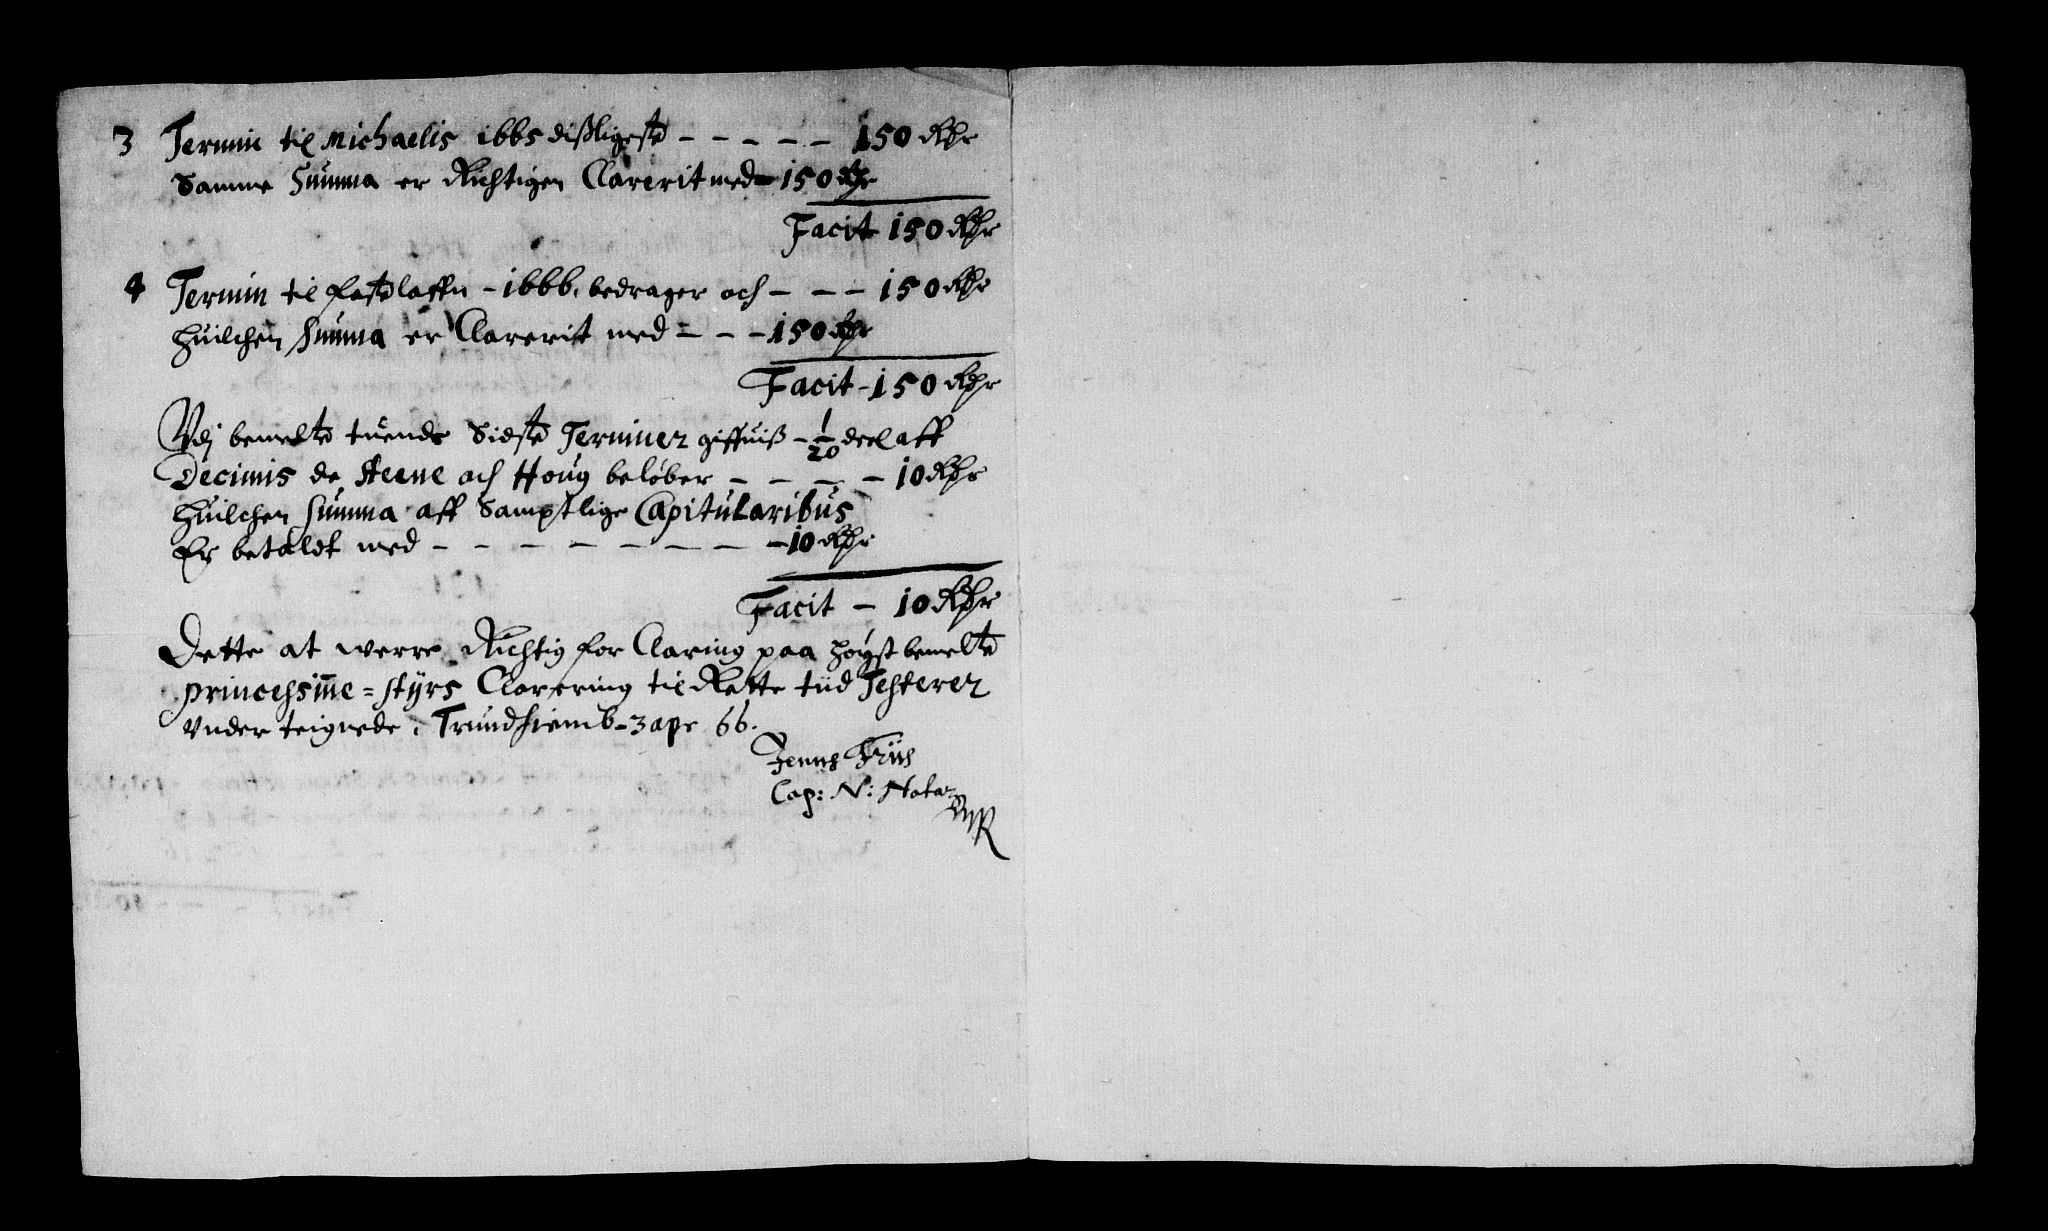 3 Termin til Michaelis 1665 dißligeste – – – – – 150 Rdr
Samme Summa er Richtigen Clarerit med – 150 Rdr
Facit 150 Rdr
4 Termin til fastelaffn – 1666. bedrager och – – – 150 Rdr
huilchen Summa er Clarerit med – – – 150 Rdr
Facit – 150 Rdr
Udj bemelte tuende Sidste Terminer giffuiß – 1/20 deel aff
Decimis de Steene och Houg beløber – – – – 10 Rdr
huilchen Summa aff Samptlige Capitularibus
Er betaldt med – – – – – – – – 10 Rdr
Facit – 10 Rdr
Dette at werre Richtig for Claring paa høyst bemelte
princehsinne = styrs Clarering til Rette tiid Testerer
Vnder teignede, Trundhiemb – 3 apr 66.
Jenns Friis
Cap: N: Notar